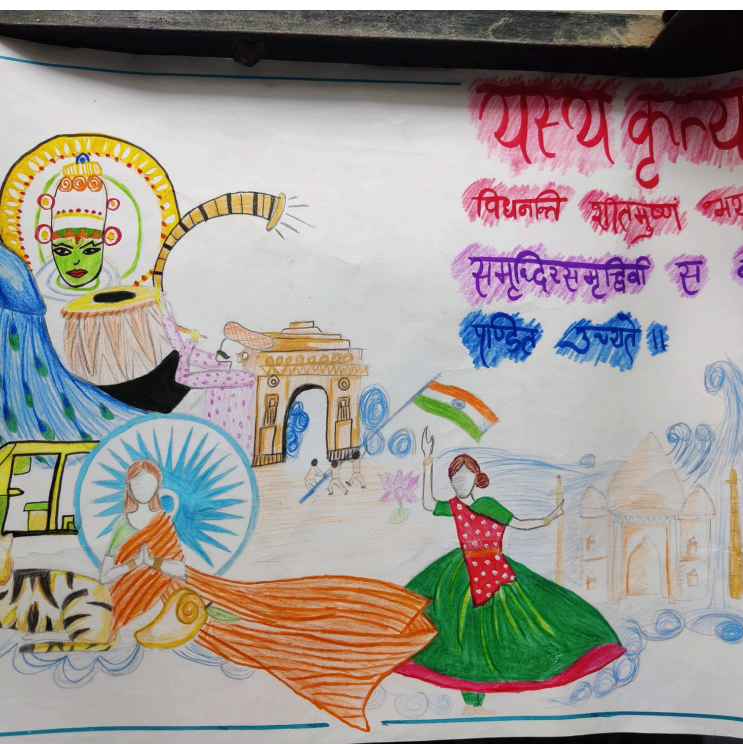 यस्य कृत्य
विघनन्ति शीतमुष्णं
समृद्धिरसमृद्धिर्वा स
पण्डित उच्यते ॥